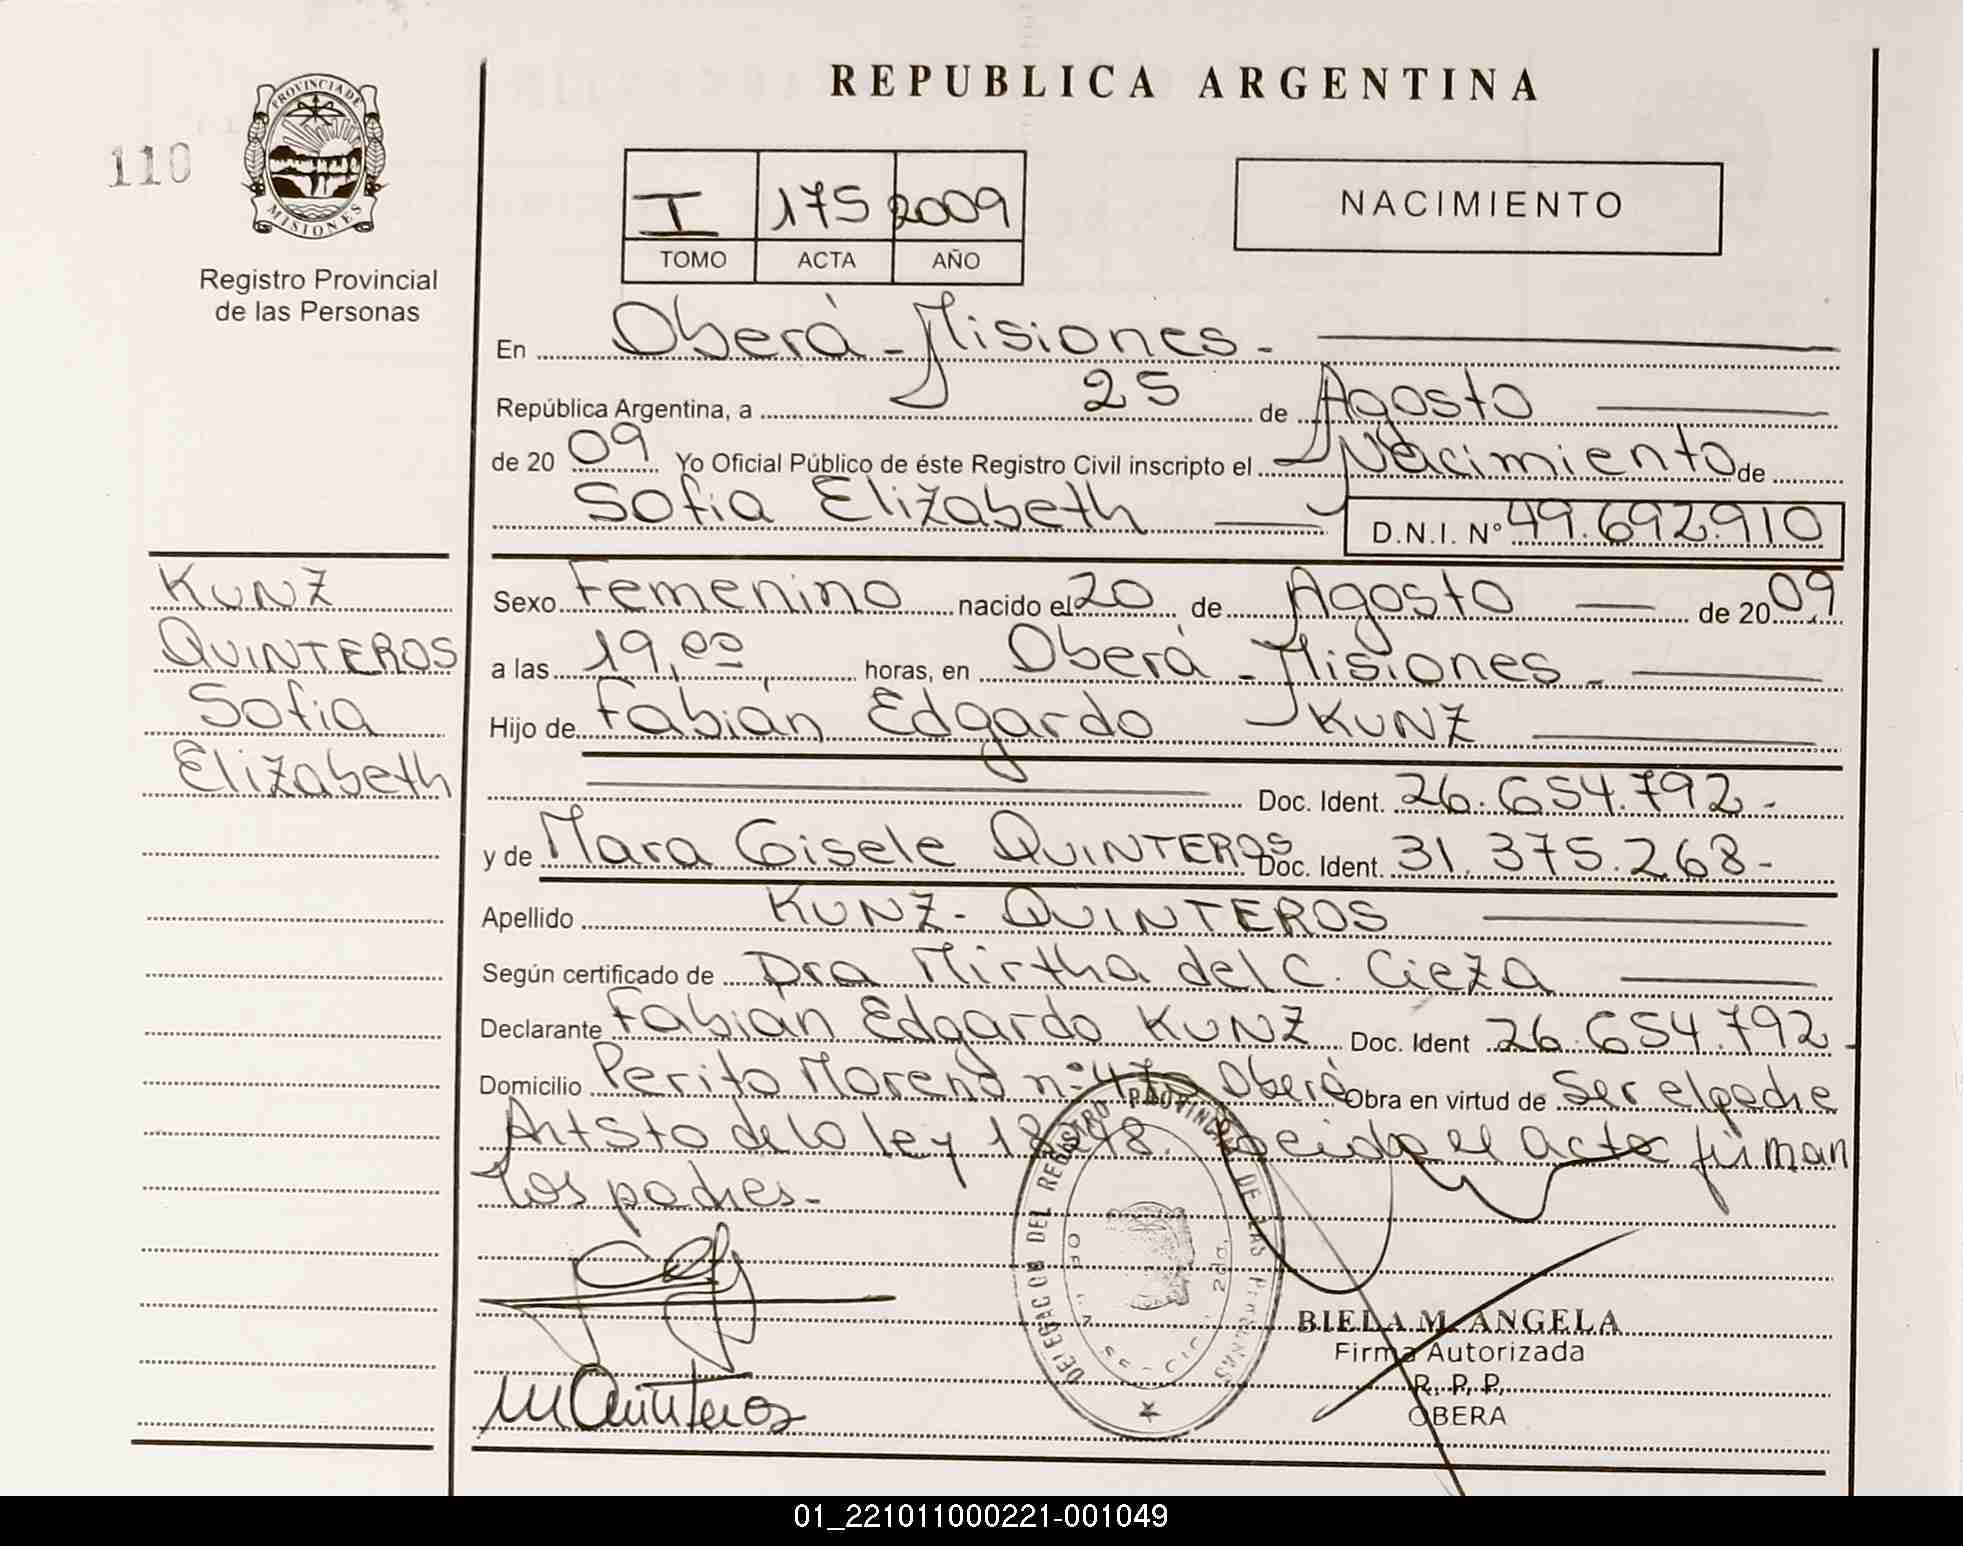 REPUBLICA ARGENTINA
110
PROVINCIA DE
MISIONES
Registro Provincial
de las Personas
I 175 2009
TOMO ACTA AÑO
NACIMIENTO
En Oberá - Misiones -
República Argentina, a 25 de Agosto
de 20 09 Yo Oficial Público de éste Registro Civil inscripto el Nacimiento de
Sofia Elizabeth D.N.I. N° 49.692.910
KUNZ
QUINTEROS
Sofia
Elizabeth
Sexo Femenino nacido el 20 de Agosto de 20 09
a las 19,00 horas, en Oberá - Misiones -
Hijo de Fabián Edgardo KUNZ
Doc. Ident. 26.654.792.-
y de Mara Gisele QUINTEROS Doc. Ident. 31.375.268-
Apellido KUNZ - QUINTEROS
Según certificado de Dra Mirtha del C. Cieza
Declarante Fabián Edgardo KUNZ Doc. Ident 26.654.792.-
Domicilio Perito Moreno n° Oberá Obra en virtud de Ser el padre
Art 5to de la ley 18248. Leida el acta firman
Los padres.-
DELEGACION DEL REGISTRO PROVINCIAL DE LAS PERSONAS
MQuinteros
BIELA M. ANGELA
Firma Autorizada
R. P. P.
OBERA
01_221011000221-001049